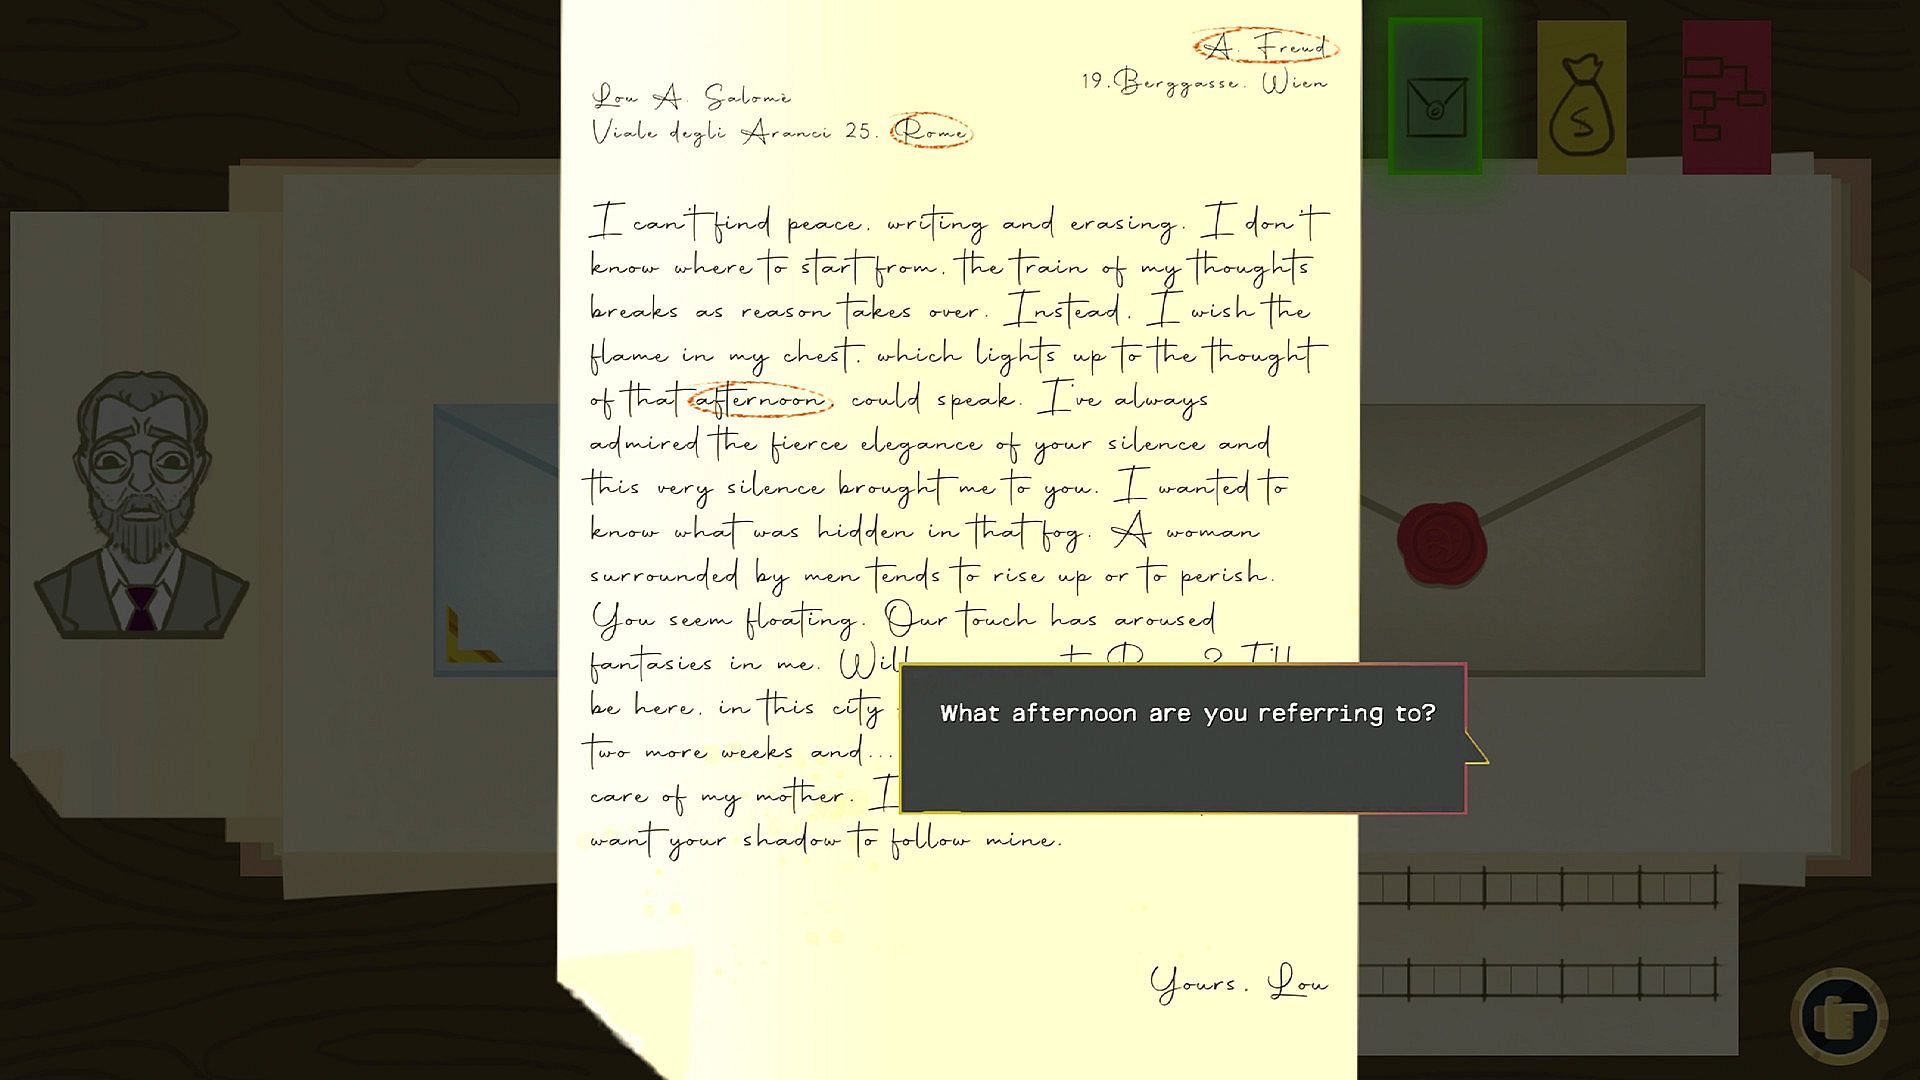 A. Freud
19. Berggasse. Wien
Lou A. Salomè
Viale degli Aranci 25. Rome
I can't find peace. writing and erasing. I don't
know where to start from. the train of my thoughts
breaks as reason takes over. Instead. I wish the
flame in my chest. which lights up to the thought
of that afternoon. could speak. I've always
admired the fierce elegance of your silence and
this very silence brought me to you. I wanted to
know what was hidden in that fog. A woman
surrounded by men tends to rise up or to perish.
You seem floating. Our touch has aroused
fantasies in me.
be here. in this city
two more weeks and...
care of my mother. I
want your shadow to follow mine.
What afternoon are you referring to?
Yours. Lou
S